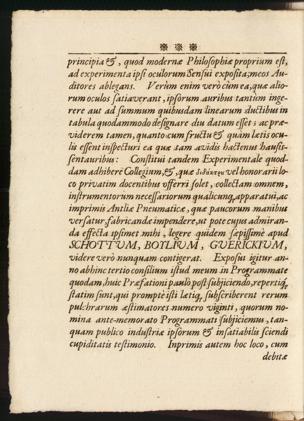 principia &, quod modernæ Philosophiæ proprium est,
ad experimenta ipsi oculorum Sensui exposita; meos Au-
ditores ablegans. Verùm enim verò cum ea, quæ alio-
rum oculos satiaverant, ipsorum auribus tantùm inge-
rere aut ad summum quibusdam linearum ductibus in
tabula quodammodo designare diu datum esset: ac præ-
viderem tamen, quanto cum fructu & quàm lætis ocu-
lis essent inspecturi ea quæ tam avidis hactenus hausis-
sent auribus: Constitui tandem Experimentale quod-
dam adhibere Collegium, &, quæ vel honorarii lo-
co privatim docentibus offerri solet, collectam omnem,
instrumentorum necessariorum qualicunq; apparatui, ac
imprimis Antliæ Pneumaticæ, quæ paucorum manibus
versatur, fabricandæ impendere, ut pote cujus admiran-
da effecta ipsimet mihi, legere quidem sæpissimè apud
SCHOTTUM, BOYLIUM, GUERICKIUM,
videre verò nunquam contigerat. Exposui igitur an-
no abhinc tertio consilium istud meum in Programmate
quodam, huic Præfationi paulò post subjiciendo, repertiq;
statim sunt, qui promptè isti lætiq; subscriberent rerum
pulchrarum æstimatores numero viginti, quorum no-
mina ante-memorato Programmati subjiciemus, tan-
quam publico industriæ ipsorum & insatiabilis sciendi
cupiditatis testimonio. Inprimis autem hoc loco, cum
debitæ